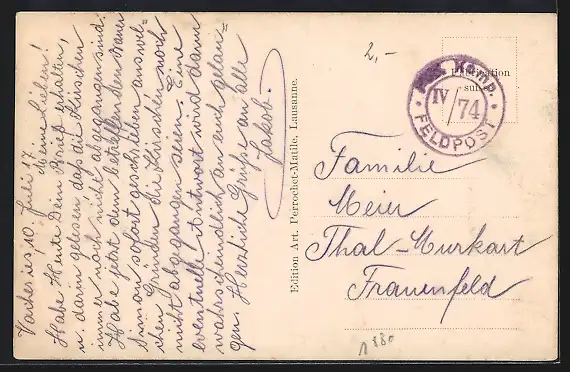 Vacheries, 10. Juli 17.
Meine Lieben!
Habe Heute Dein Brief erhalten,
u. darin gelesen das die Kirschen
immer noch nicht abgegangen sind.
Habe jetzt dem betreffenden
sofort geschrieben aus wel-
chen Gründen die Kirschen noch
nicht abgegangen seien. Eine
eventuelle Antwort wird dann
wahrscheindlich an euch gelan-
gen. Herzliche Grüsse an alle
Jakob.
Edition Art. Perrochet-Matile, Lausanne.
2,-
Komp.
IV/74
FELDPOST
Familie
Meier
Thal-Murkart
Frauenfeld
1880